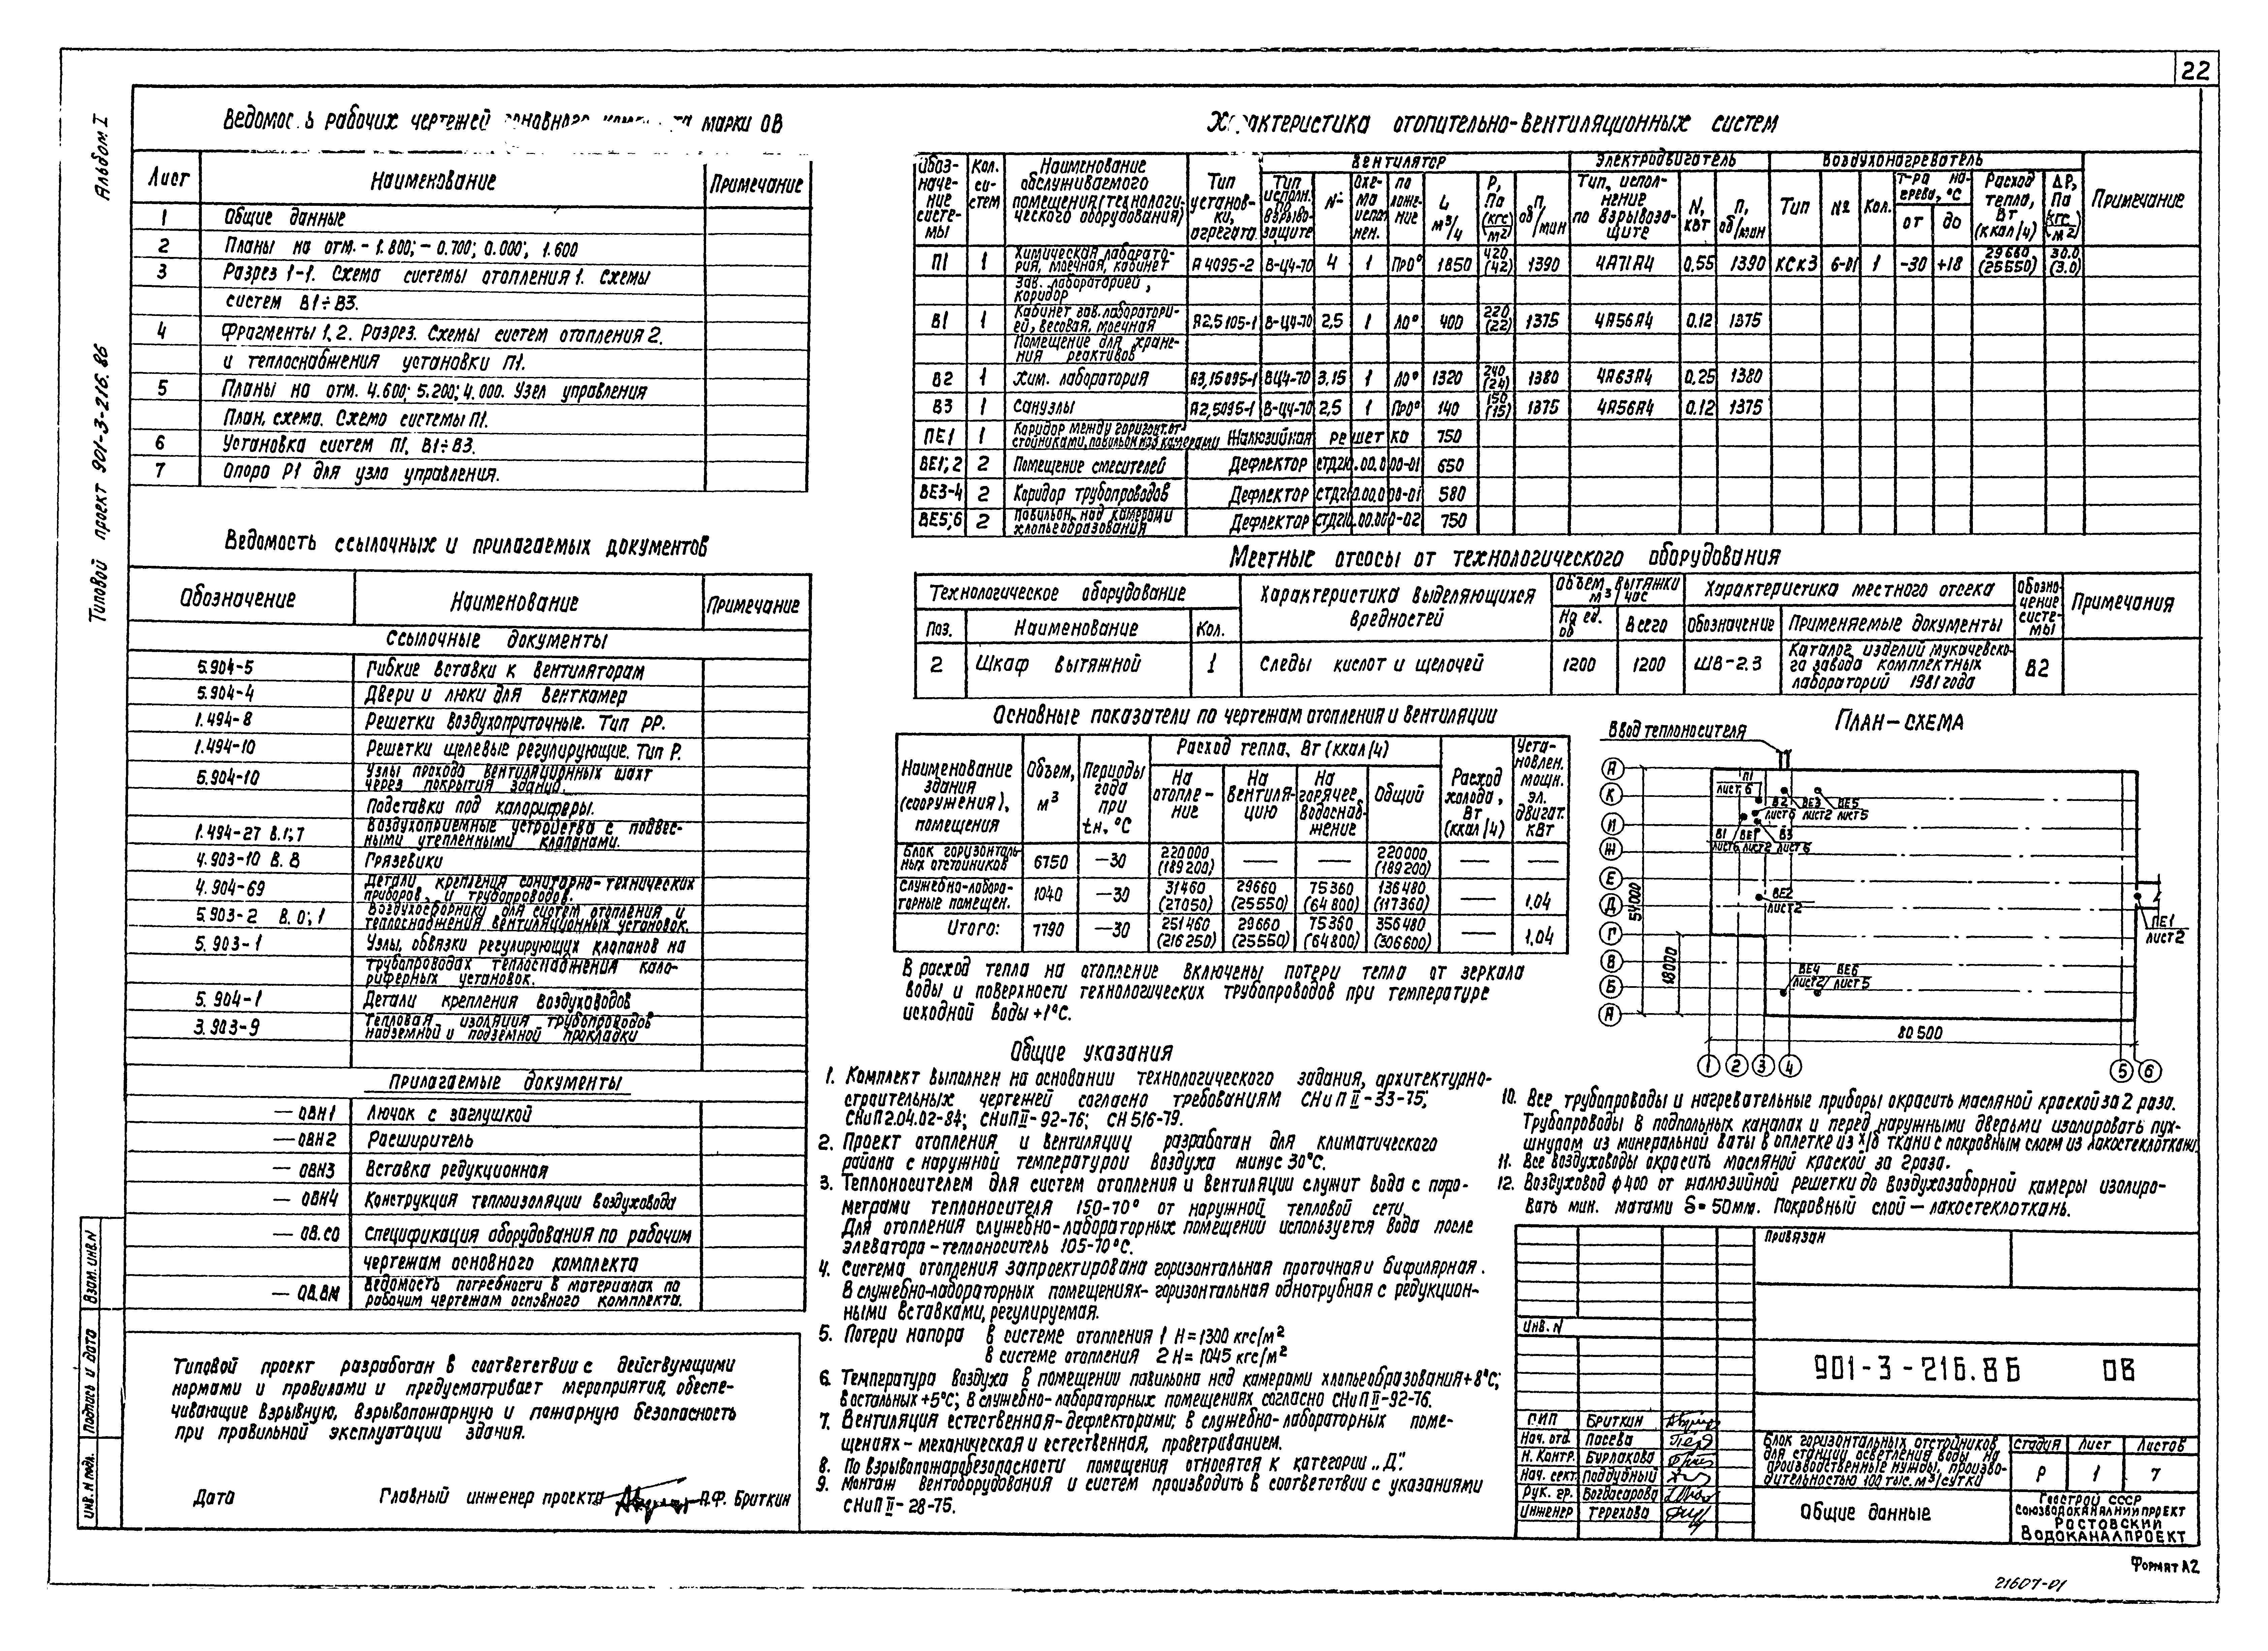 22
Альбом I
Типовой проект 901-3-216.86
рабочих чертежей марки ОВ
Лист Наименование Примечание
1 Общие данные
2 Планы на отм. -1.800; -0.700; 0.000; 1.600
3 Разрез 1-1. Схема системы отопления 1. Схемы
систем В1÷В3.
4 Фрагменты 1,2. Разрез. Схемы систем отопления 2.
и теплоснабжения установки П1.
5 Планы на отм. 4.600; 5.200; 4.000. Узел управления
План, схема. Схема системы П1.
6 Установка систем П1, В1÷В3.
7 Опора Р1 для узла управления.
Ведомость ссылочных и прилагаемых документов
Обозначение Наименование Примечание
Ссылочные документы
5.904-5 Гибкие вставки к вентиляторам
5.904-4 Двери и люки для венткамер
1.494-8 Решетки воздухоприточные. Тип РР.
1.494-10 Решетки щелевые регулирующие. Тип Р.
5.904-10 Узлы прохода вентиляционных шахт
через покрытия зданий.
Подставки под калориферы.
1.494-27 В.1;7 Воздухоприемные устройства с подвес-
ными утепленными клапанами.
4.903-10 В. 8 Грязевики
4.904-69 Детали крепления санитарно-технических
приборов, и трубопроводов.
5.903-2 В. 0; 1 Воздухосборники для систем отопления и
теплоснабжения вентиляционных установок.
5.903-1 Узлы, обвязки регулирующих клапанов на
трубопроводах теплоснабжения кало-
риферных установок.
5.904-1 Детали крепления воздуховодов
3.903-9 Тепловая изоляция трубопроводов
надземной и подземной прокладки
Прилагаемые документы
— ОВН1 Лючок с заглушкой
— ОВН2 Расширитель
— ОВН3 Вставка редукционная
— ОВН4 Конструкция теплоизоляции воздуховода
— ОВ.СО Спецификация оборудования по рабочим
чертежам основного комплекта
— ОВ.ВМ Ведомость потребности в материалах по
рабочим чертежам основного комплекта.
Типовой проект разработан в соответствии с действующими
нормами и правилами и предусматривает мероприятия, обеспе-
чивающие взрывную, взрывопожарную и пожарную безопасность
при правильной эксплуатации здания.
Дата Главный инженер проекта А.Ф. Бриткин
Взам. инв.N
Подпись и дата
Инв. N подл.
Характеристика отопительно-вентиляционных систем
Обоз-
наче-
ние
систе-
мы
Кол.
си-
стем
Наименование
обслуживаемого
помещения (технологи-
ческого оборудования)
Тип
установ-
ки,
агрегата
Вентилятор
Тип
исполн.
по
взрыво-
защите
№
Схе-
ма
испол-
нен.
по
ложе-
ние
L
м³/ч
Р,
Па
(кгс/м²)
п,
об/мин
Электродвигатель
Тип, испол-
нение
по взрывоза-
щите
N,
кВт
п,
об/мин
Воздухонагреватель
Тип
№
Кол.
Т-ра на-
грева, °С
от до
Расход
тепла,
Вт
(ккал/ч)
ΔР,
Па
(кгс/м²)
Примечание
П1 1 Химическая лаборато-
рия, моечная, кабинет
зав. лабораторией,
коридор
А4095-2 В-Ц4-70 4 1 ПР0° 1850 420 (42) 1390 4А71А4 0.55 1390 КСК3 6-01 1 -30 +18 29660 (25550) 30.0 (3.0)
В1 1 Кабинет зав. лаборатори-
ей, весовая, моечная
Помещение для хране-
ния реактивов
А2,5105-1 В-Ц4-70 2,5 1 Л0° 400 220 (22) 1375 4А56А4 0.12 1375
В2 1 Хим. лаборатория А3,15095-1 ВЦ4-70 3.15 1 Л0° 1320 240 (24) 1380 4А63А4 0.25 1380
В3 1 Санузлы А2,5095-1 В-Ц4-70 2,5 1 ПР0° 140 150 (15) 1375 4А56А4 0.12 1375
ПЕ1 1 Коридор между горизонт. от-
стойниками, павильон над камерами Жалюзийная решетка 750
ВЕ1;2 2 Помещение смесителей Дефлектор СТД210.00.000-01 650
ВЕ3-4 2 Коридор трубопроводов Дефлектор СТД210.00.000-01 580
ВЕ5;6 2 Павильон над камерами
хлопьеобразования Дефлектор СТД210.00.000-02 750
Местные отсосы от технологического оборудования
Технологическое оборудование
Поз. Наименование Кол.
Характеристика выделяющихся
вредностей
Объем вытяжки
м³/час
На ед.
об
Всего
Характеристика местного отсека
Обозначение Применяемые документы
Обозна-
чение
систе-
мы
Примечания
2 Шкаф вытяжной 1 Следы кислот и щелочей 1200 1200 ШВ-2.3 Каталог изделий Мукачевско-
го завода комплектных
лабораторий 1981 года
В2
Основные показатели по чертежам отопления и вентиляции
Наименование
здания
(сооружения),
помещения
Объем,
м³
Периоды
года
при
tн, °С
Расход тепла, Вт (ккал/ч)
На
отопле-
ние
На
вентиля-
цию
На
горячее
водоснаб-
жение
Общий
Расход
холода,
Вт
(ккал/ч)
Уста-
новлен.
мощн.
эл.
двигат.
кВт
Блок горизонталь-
ных отстойников 6750 —30 220000 (189200) — — 220000 (189200) — —
Служебно-лабора-
торные помещен. 1040 —30 31460 (27050) 29660 (25550) 75360 (64800) 136480 (117360) — 1.04
Итого: 7790 —30 251460 (216250) 29660 (25550) 75360 (64800) 356480 (306600) — 1.04
В расход тепла на отопление включены потери тепла от зеркала
воды и поверхности технологических трубопроводов при температуре
исходной воды +1°С.
План-схема
Ввод теплоносителя
Л
К
И
Ж
Е
Д
Г
В
Б
А
54000
18000
80500
1 2 3 4 5 6
П1
лист 6
В2 ВЕ3 ВЕ5
лист 6 лист 2 лист 5
В1 ВЕ1 В3
лист 6 лист 2 лист 6
ВЕ2
лист 2
ВЕ4 ВЕ6
лист 2 лист 5
ПЕ1
лист 2
Общие указания
1. Комплект выполнен на основании технологического задания, архитектурно-
строительных чертежей согласно требованиям СНиП II-33-75;
СНиП 2.04.02-84; СНиП II-92-76; СН 516-79.
2. Проект отопления и вентиляции разработан для климатического
района с наружной температурой воздуха минус 30°С.
3. Теплоносителем для систем отопления и вентиляции служит вода с пара-
метрами теплоносителя 150-70° от наружной тепловой сети.
Для отопления служебно-лабораторных помещений используется вода после
элеватора - теплоноситель 105-70°С.
4. Система отопления запроектирована горизонтальная проточная и бифилярная.
В служебно-лабораторных помещениях - горизонтальная однотрубная с редукцион-
ными вставками, регулируемая.
5. Потери напора в системе отопления 1 Н=1300 кгс/м²
в системе отопления 2 Н=1045 кгс/м²
6. Температура воздуха в помещении павильона над камерами хлопьеобразования +8°С;
в остальных +5°С; в служебно-лабораторных помещениях согласно СНиП II-92-76.
7. Вентиляция естественная - дефлекторами; в служебно-лабораторных поме-
щениях - механическая и естественная, проветриванием.
8. По взрывопожаробезопасности помещения относятся к категории „Д".
9. Монтаж вентоборудования и систем производить в соответствии с указаниями
СНиП II-28-75.
10. Все трубопроводы и нагревательные приборы окрасить масляной краской за 2 раза.
Трубопроводы в подпольных каналах и перед наружными дверьми изолировать пух-
шнуром из минеральной ваты в оплетке из х/б ткани с покровным слоем из лакостеклоткани.
11. Все воздуховоды окрасить масляной краской за 2 раза.
12. Воздуховод ф400 от жалюзийной решетки до воздухозаборной камеры изолиро-
вать мин. матами δ=50мм. Покровный слой — лакостеклоткань.
Привязан
Инв. N
901-3-216.86 ОВ
ГИП Бриткин
Нач. отд. Посева
Н. Контр. Бурлакова
Нач. сект. Поддубный
Рук. гр. Богдасарова
Инженер Терехова
Блок горизонтальных отстойников
для станции осветления воды на
производственные нужды, произво-
дительностью 100 тыс. м³/сутки
Стадия Лист Листов
Р 1 7
Общие данные
Госстрой СССР
Союзводоканалниипроект
Ростовский
Водоканалпроект
Формат А2
21607-01